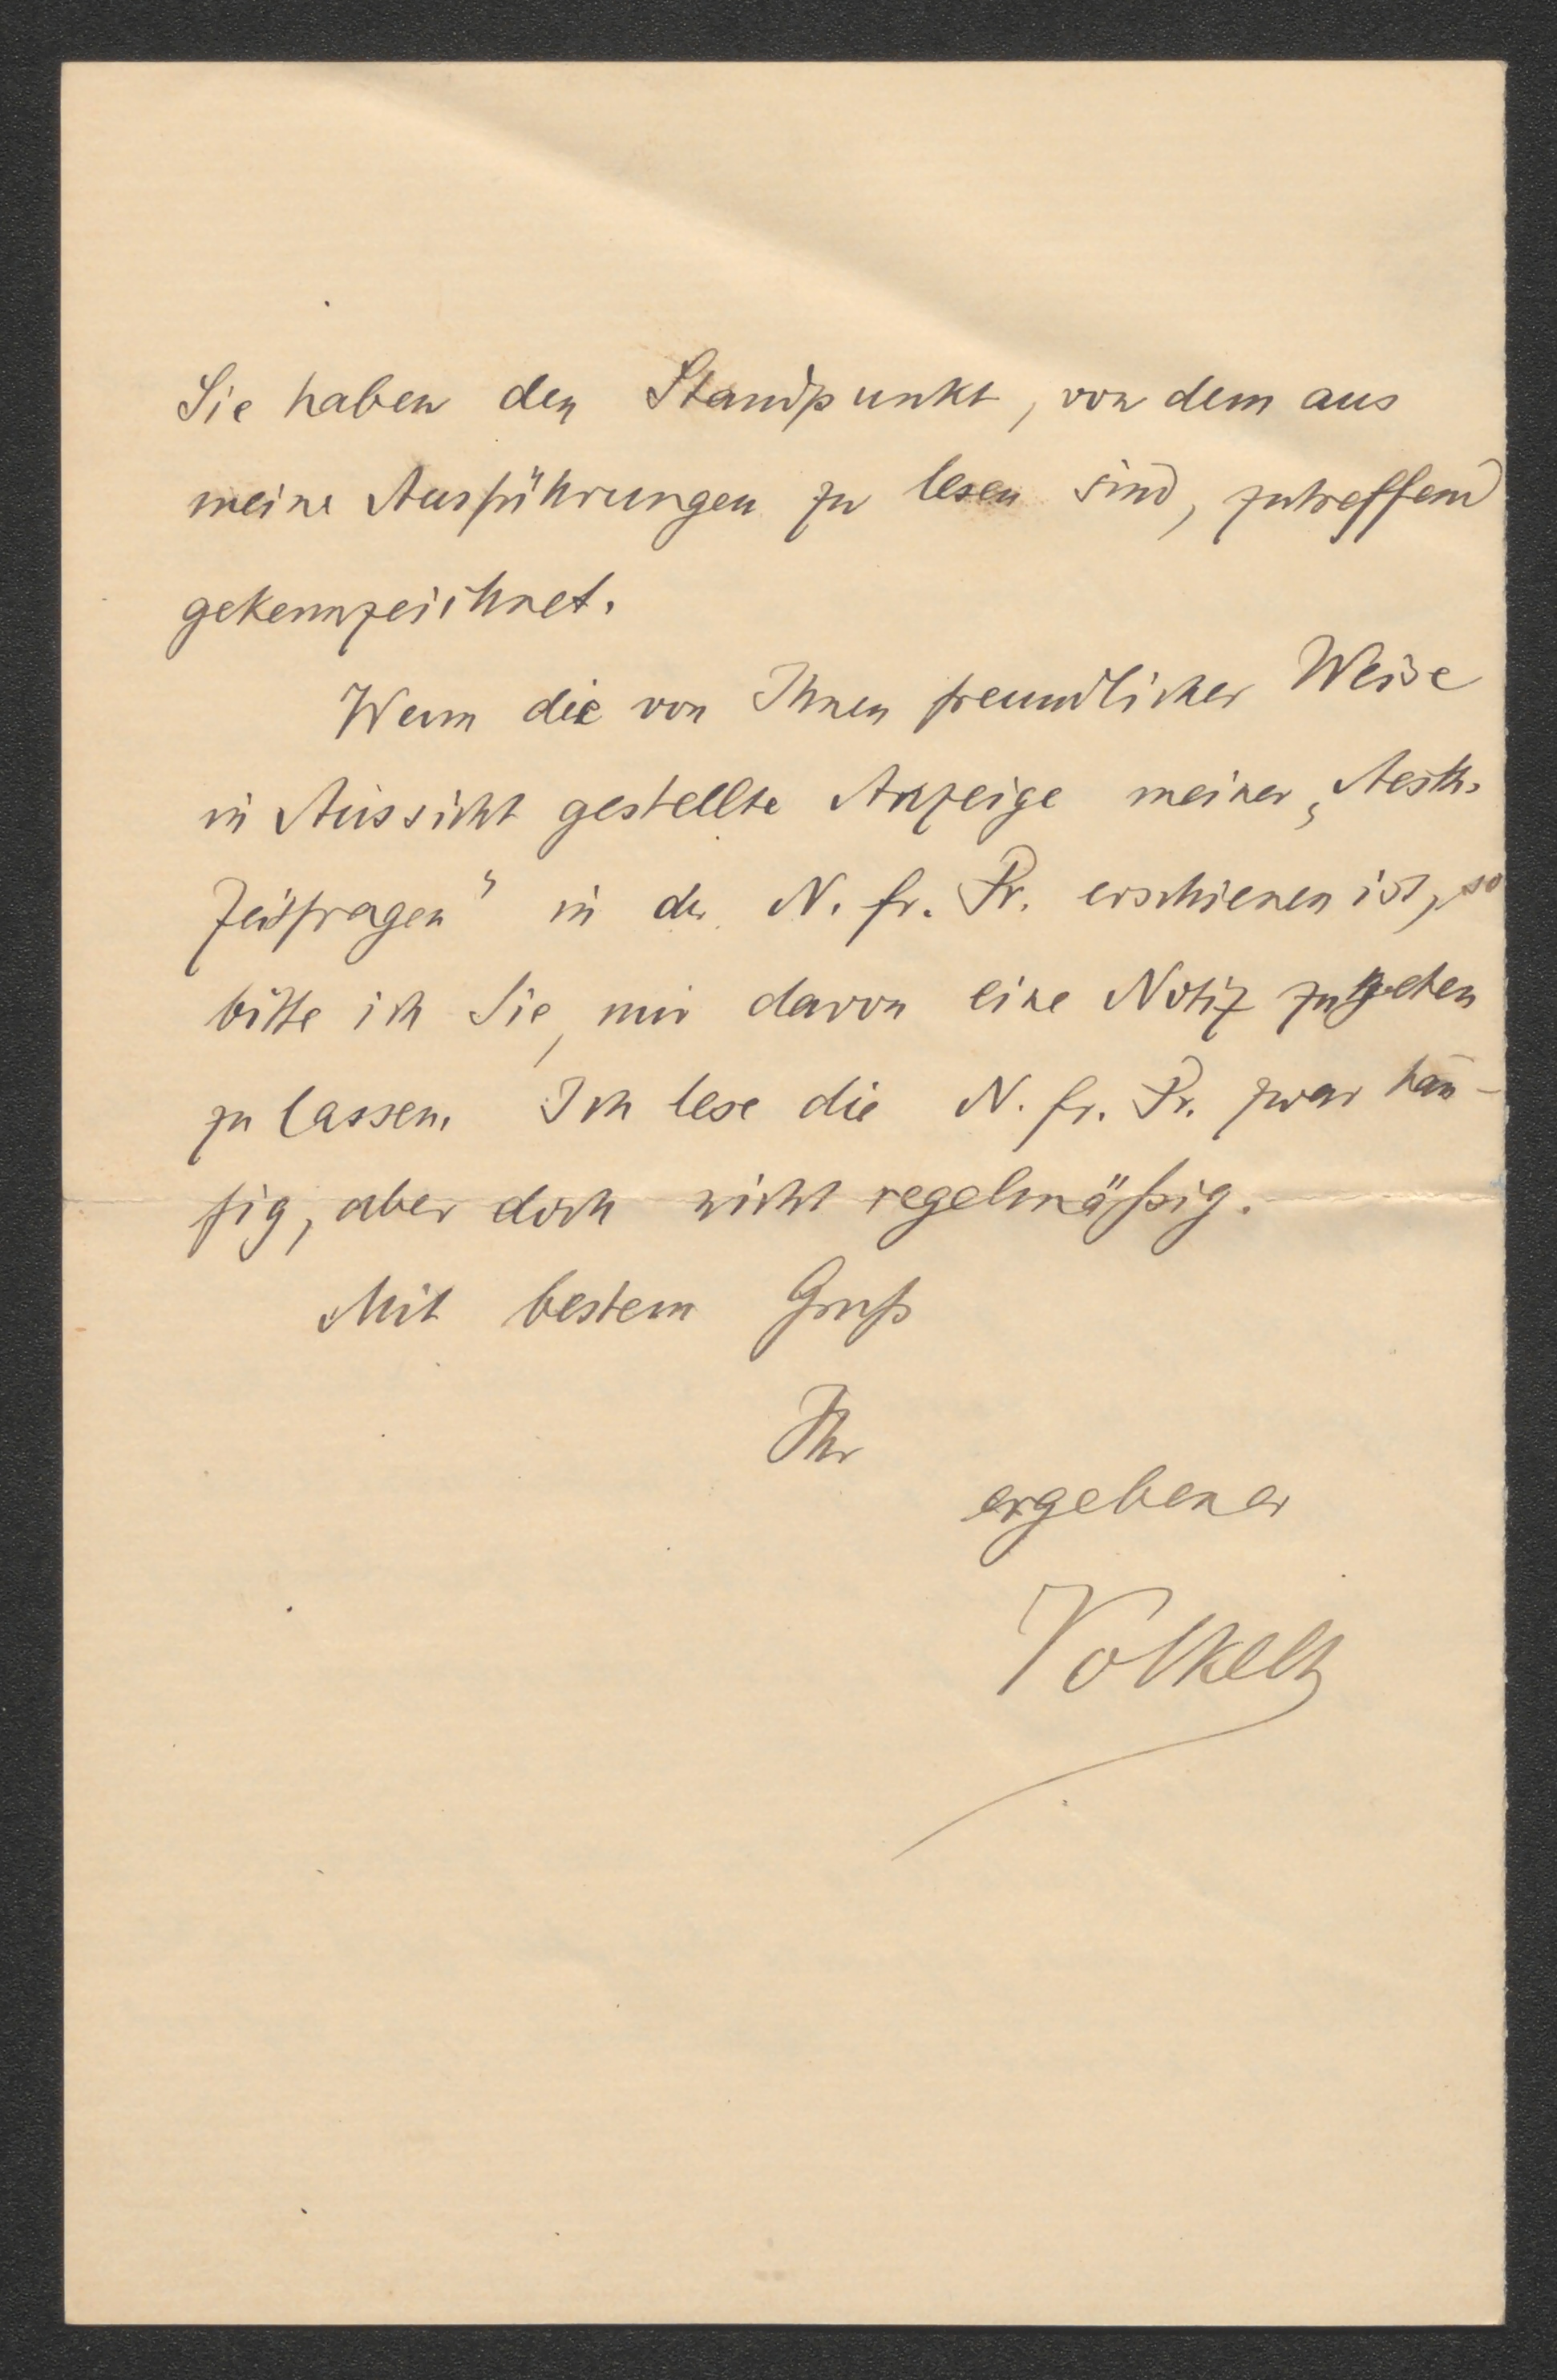 Sie haben den Standpunkt, von dem aus
meine Ausführungen zu lesen sind, zutreffend
gekennzeichnet.
Wenn die von Ihnen freundlicher Weise
in Aussicht gestellte Anzeige meiner „Aesth.
Zeitfragen“ in der N. fr. Pr. erschienen ist, so
bitte ich Sie, mir davon eine Notiz zugehen
zu lassen. Ich lese die N. fr. Pr. zwar häu-
fig, aber doch nicht regelmäßig.
Mit bestem Gruß
Ihr
ergebener
Volkelt